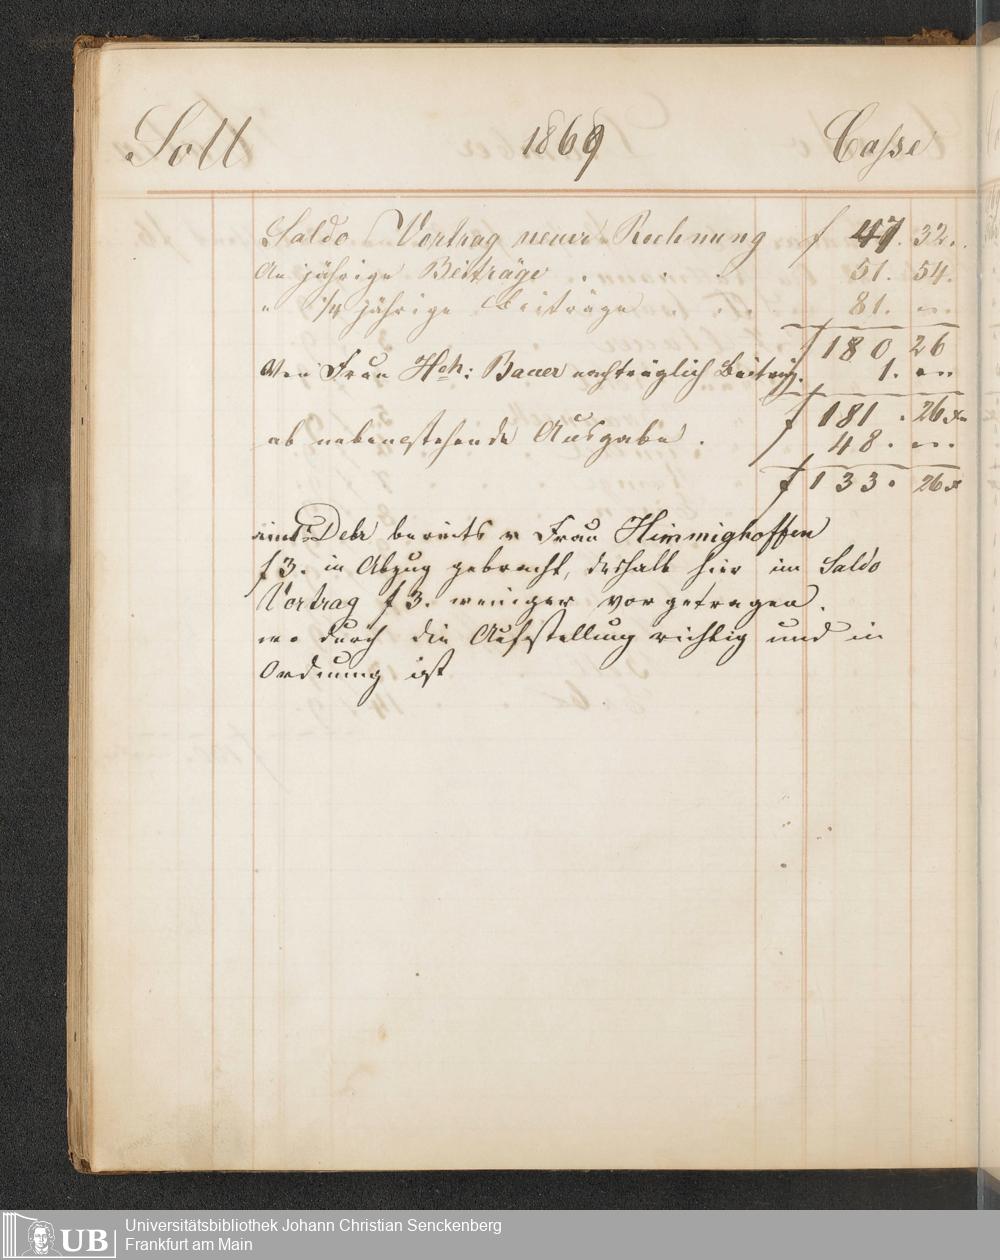 Soll 1869 Casse
Saldo Vortrag neuer Rechnung f 47. 32.
An jährige Beiträge . . . 51. 54.
" 1/4 jährige Beiträge . . . 81. "
f 180 26
Von Frau Hch: Bauer nachträglich Beitrag. 1. "
f 181 . 26 x
ab nebenstehende Ausgabe . 48. "
f 133. 26 x
Debr bereits v Frau Himmighoffen
f 3. in Abzug gebracht, deshalb hier im Saldo
Vortrag f 3. weniger vorgetragen.
wo durch die Aufstellung richtig und in
Ordnung ist
UB Universitätsbibliothek Johann Christian Senckenberg
Frankfurt am Main